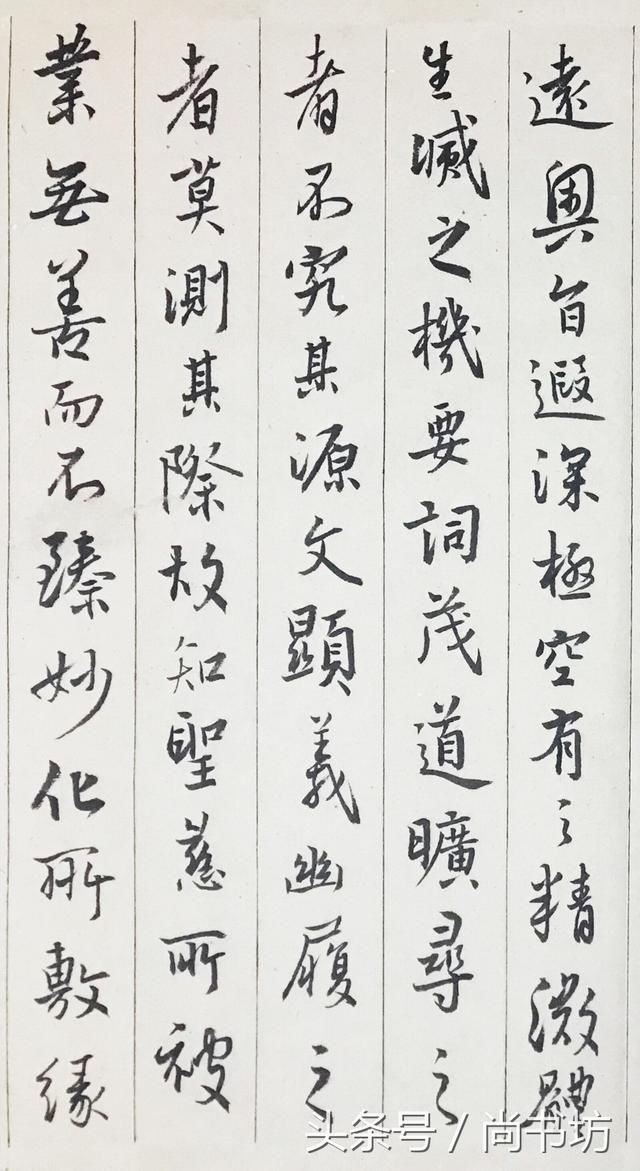 遠奧旨遐深極空有之精微體
生滅之機要詞茂道曠尋之
者不究其源文顯義幽履之
者莫測其際故知聖慈所被
業無善而不臻妙化所敷緣
头条号 / 尚书坊